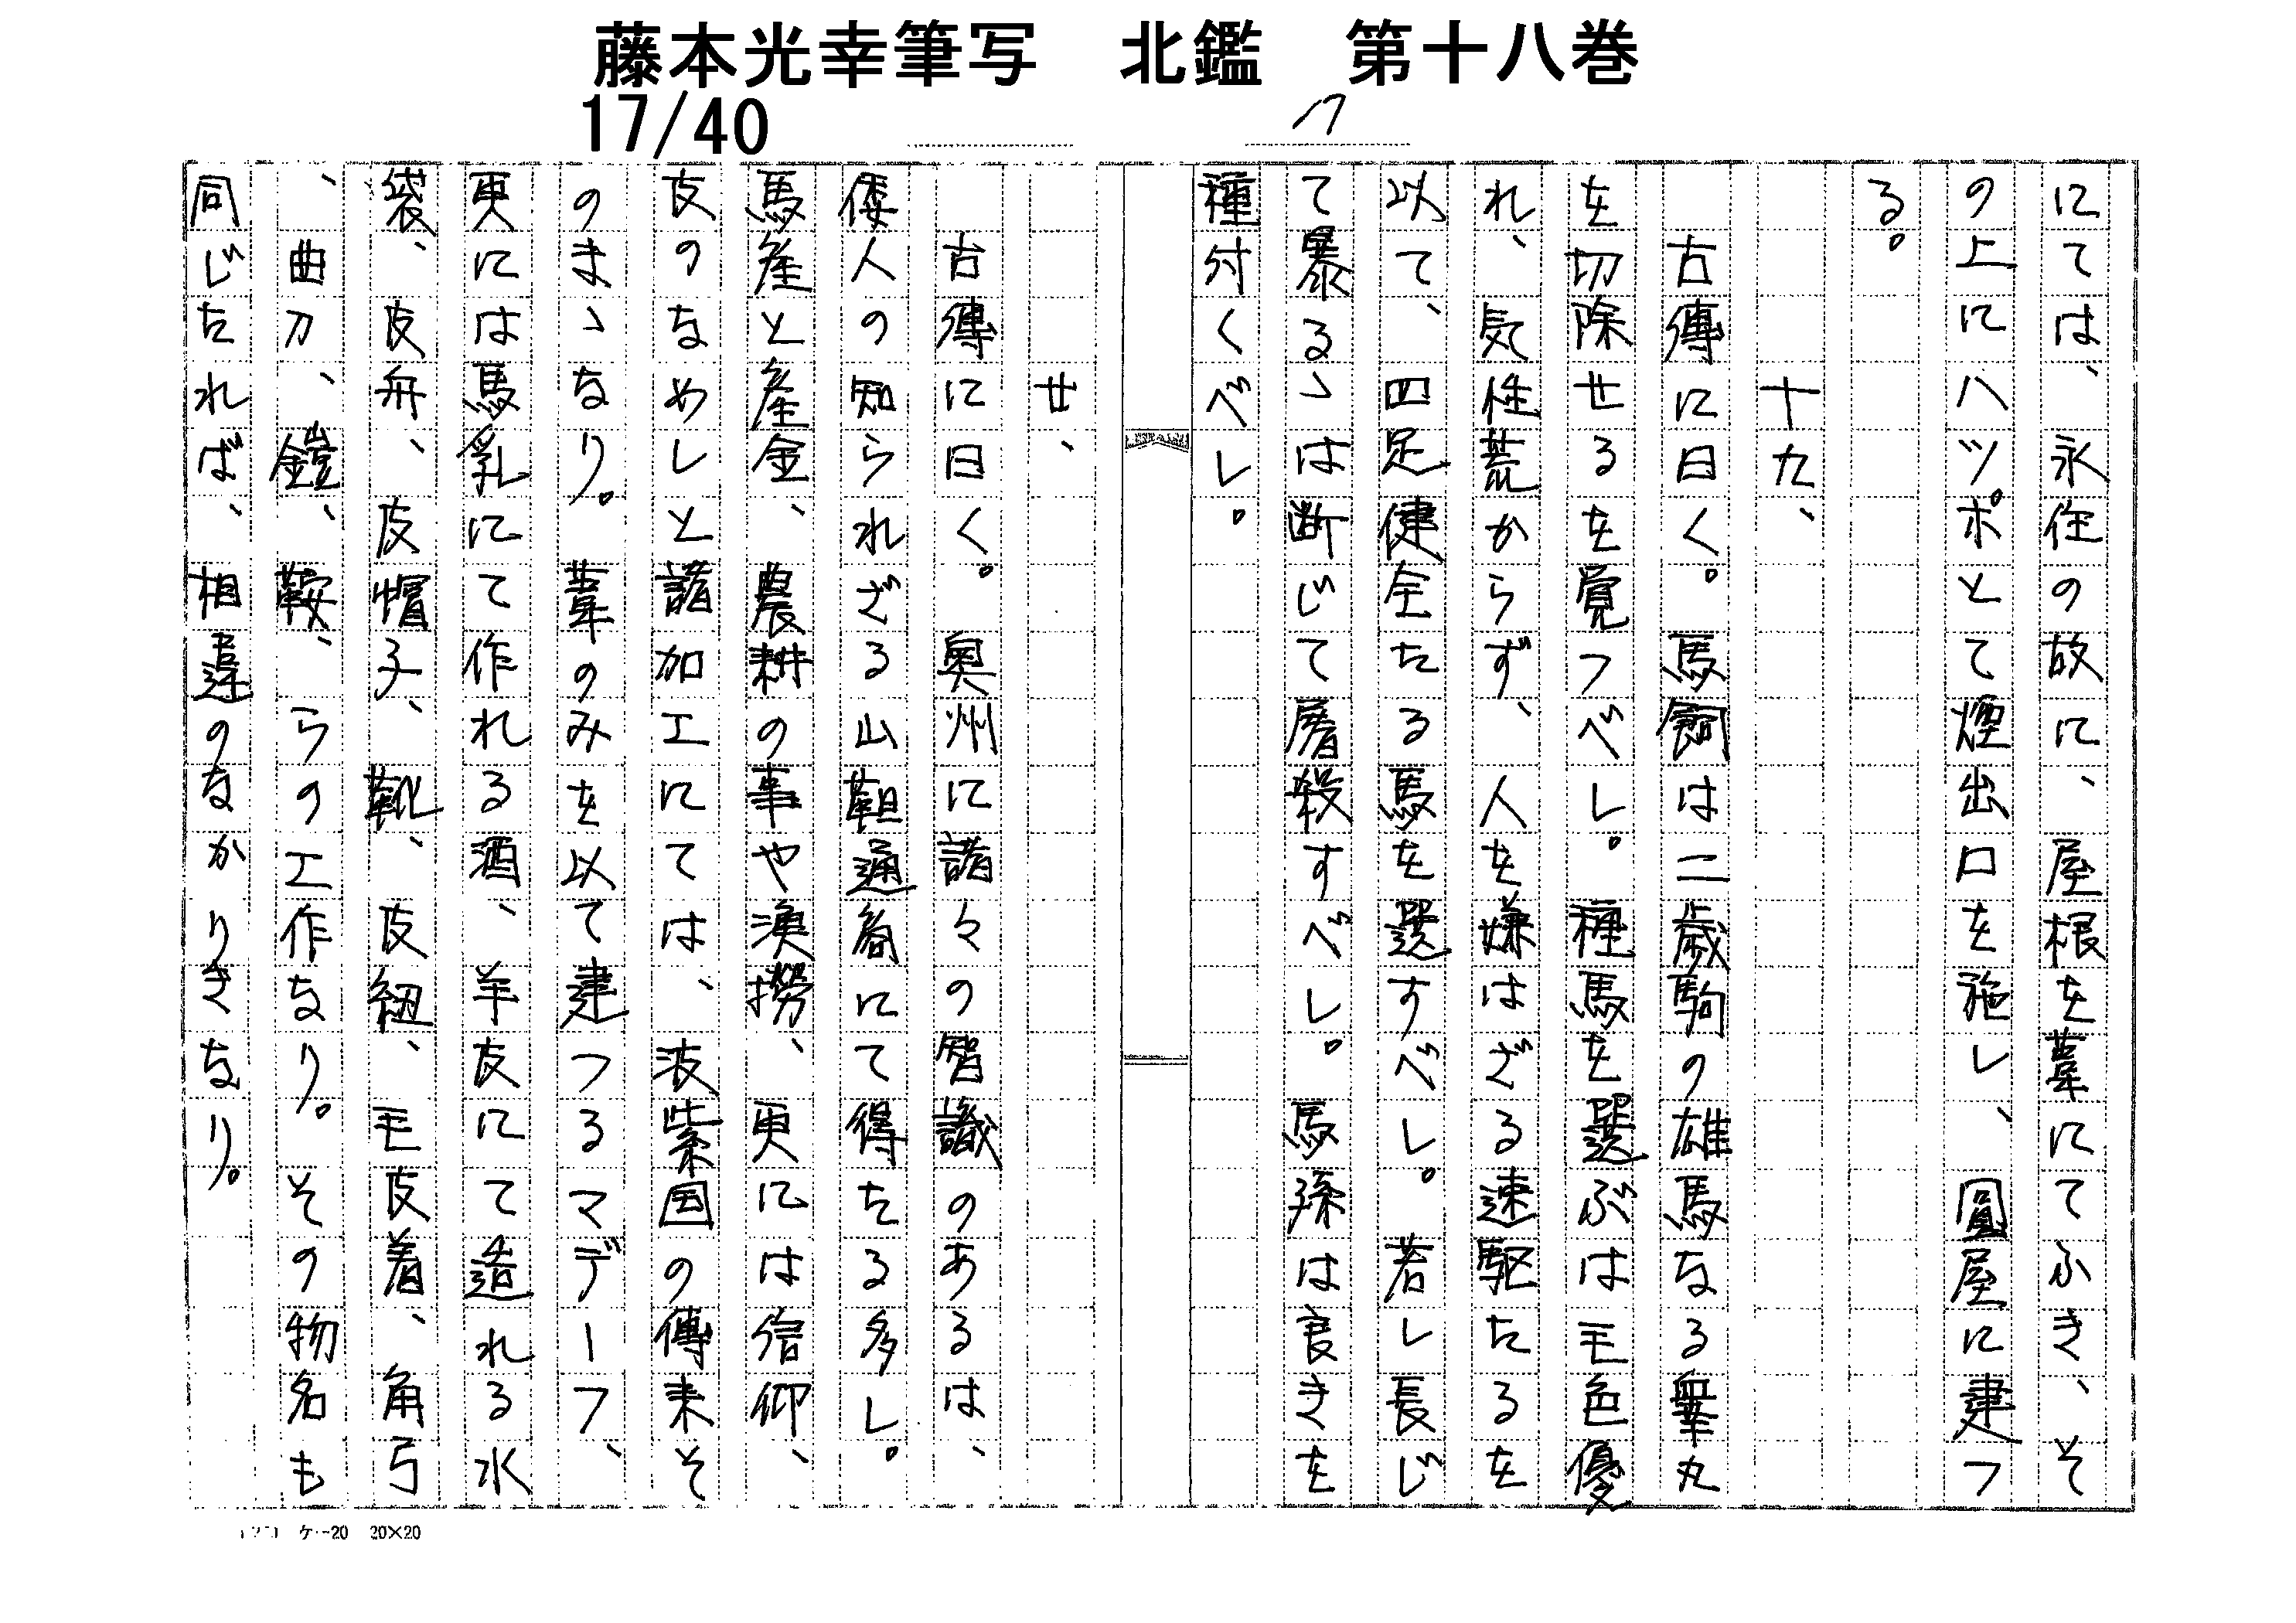 藤本光幸筆写　北鑑　第十八巻
17/40
17
にては、永住の故に、屋根を葦にてふき、そ
の上にハツポとて煙出口を施し、圓屋に建つ
る。
十九、
古傳に曰く。馬飼は二歳駒の雄馬なる睾丸
を切除せるを覚つべし。種馬を選ぶは毛色優
れ、気性荒からず、人を嫌はざる速駆たるを
以て、四足健全たる馬を選すべし。若し長じ
て暴るゝは断じて屠殺すべし。馬孫は良きを
種付くべし。
廿、
古傳に曰く。奥州に諸々の智識のあるは、
倭人の知られざる山靼通商にて得たる多し。
馬産と産金、農耕の事や漁撈、更には信仰、
皮のなめしと諸加工にては、波紫国の傳来そ
のまゝなり。葦のみを以て建つるマデーフ、
更には馬乳にて作れる酒、羊皮にて造れる水
袋、皮舟、皮帽子、靴、皮紐、毛皮着、角弓
、曲刀、鎧、鞍、らの工作なり。その物名も
同じたれば、相違のなかりきなり。
ケー20　20×20